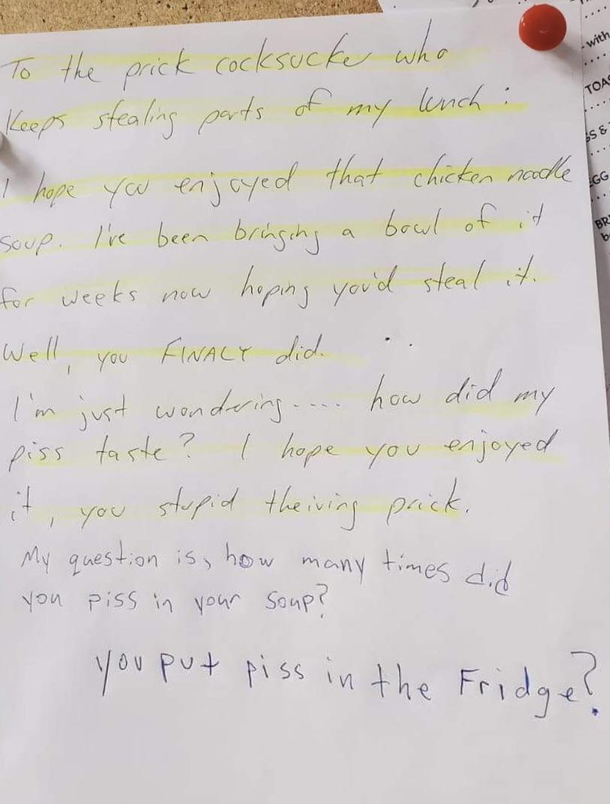 To the prick cocksucke who
Keeps stealing parts of my lunch:
I hope you enjoyed that chicken noodle
soup. I've been bringing a bowl of it
for weeks now hoping you'd steal it.
Well, you FINALY did.
I'm just wondering.... how did my
piss taste? I hope you enjoyed
it, you stupid theiving prick.
My question is, how many times did
you piss in your soup?
You put piss in the Fridge?
with
TOAS
GS &
EGG
BR